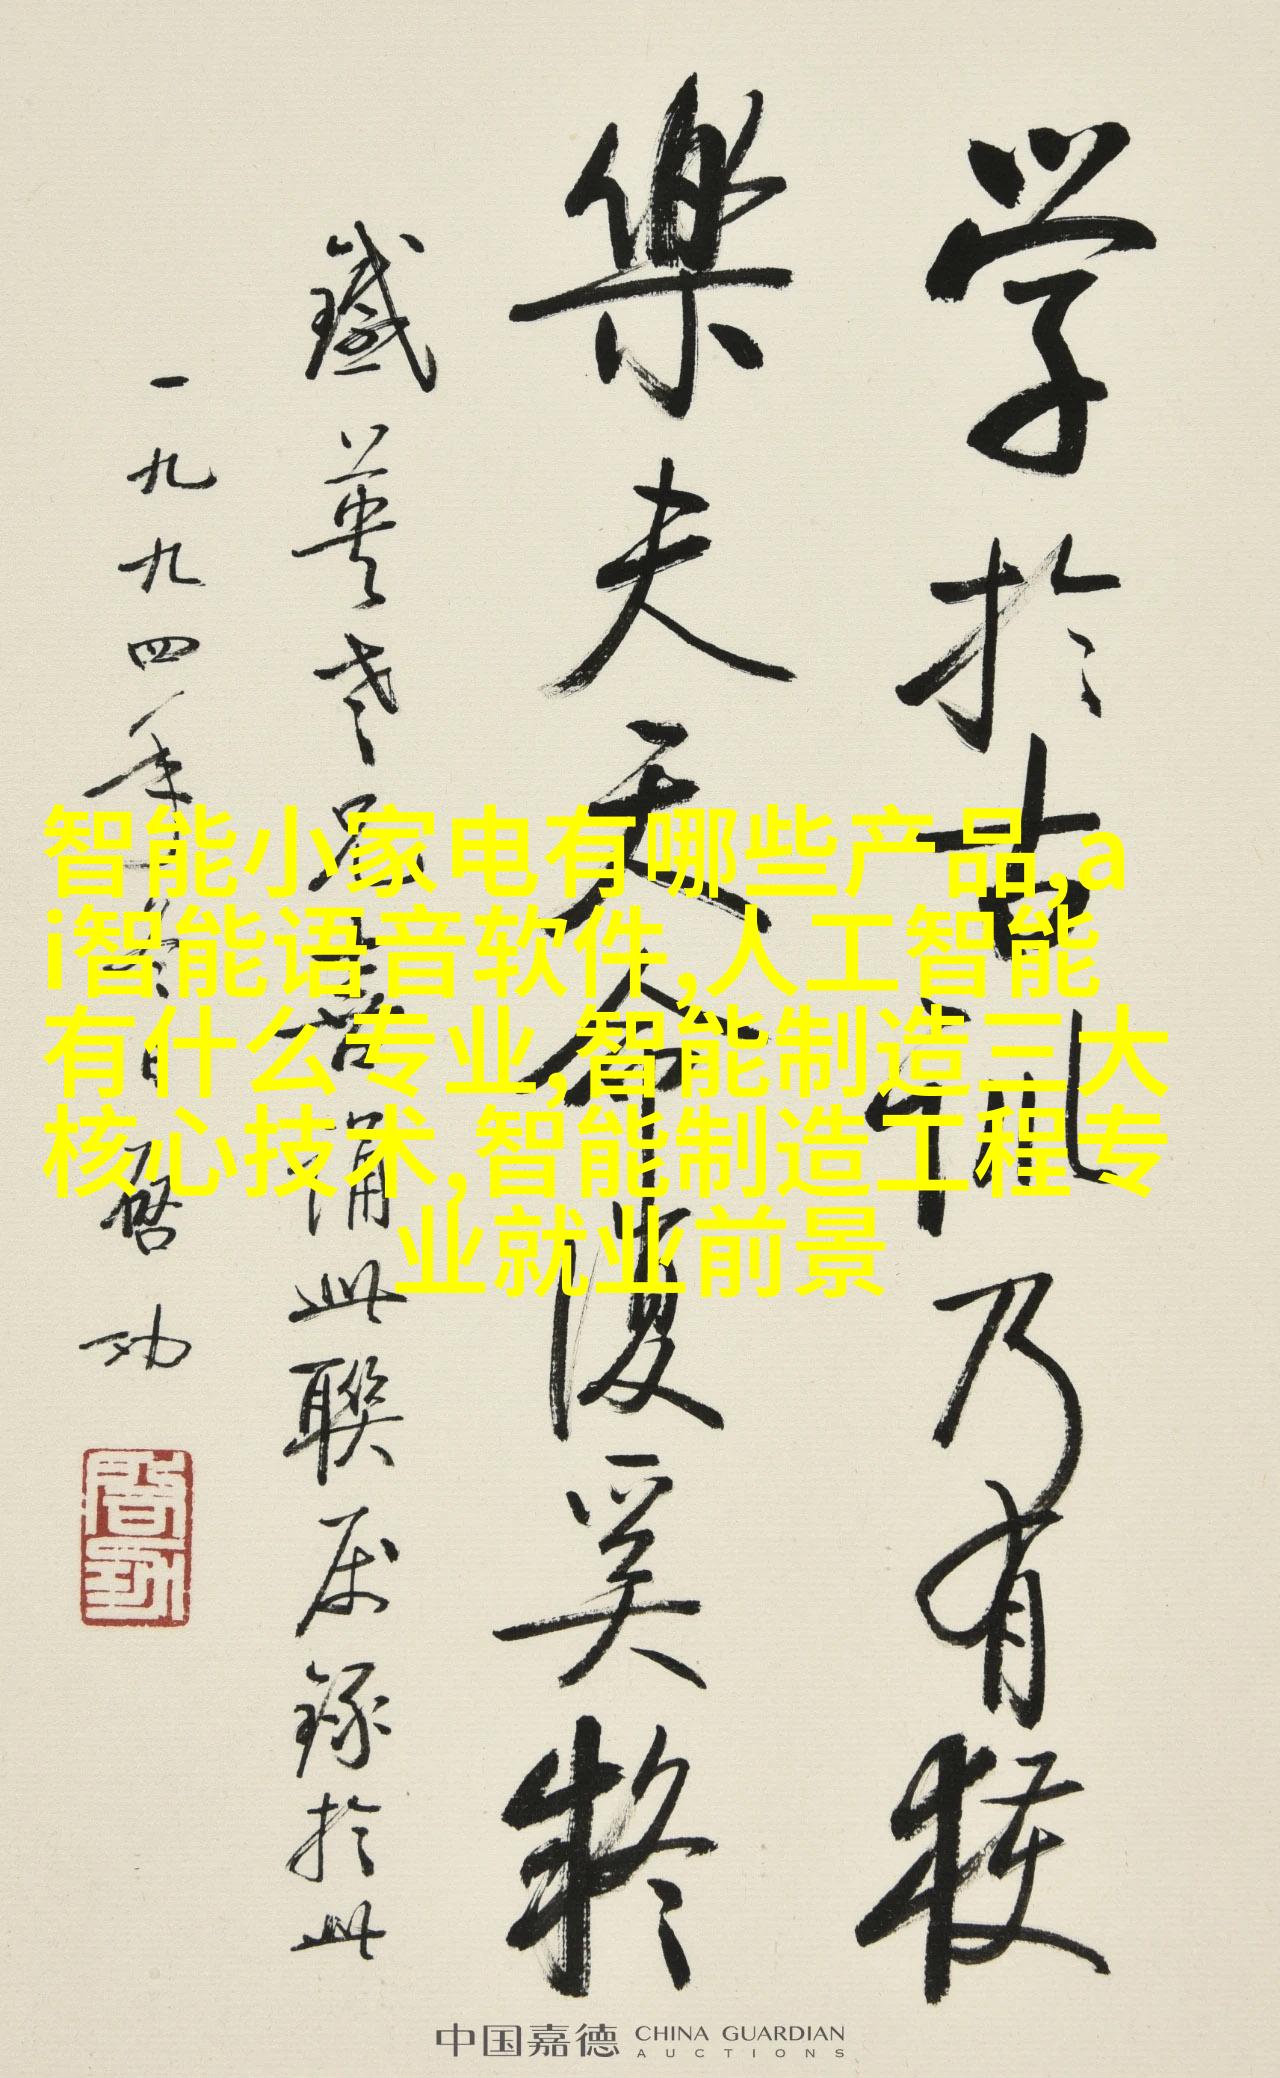 学於古训乃有獲
樂夫天命復奚疑
鐵英老兄喜誦此聯属録於此
一九九四年春日启功
智能小家电有哪些产品,a
i智能语音软件,人工智能
有什么专业,智能制造三大
核心技术,智能制造工程专
业就业前景
中国嘉德 CHINA GUARDIAN
AUCTIONS